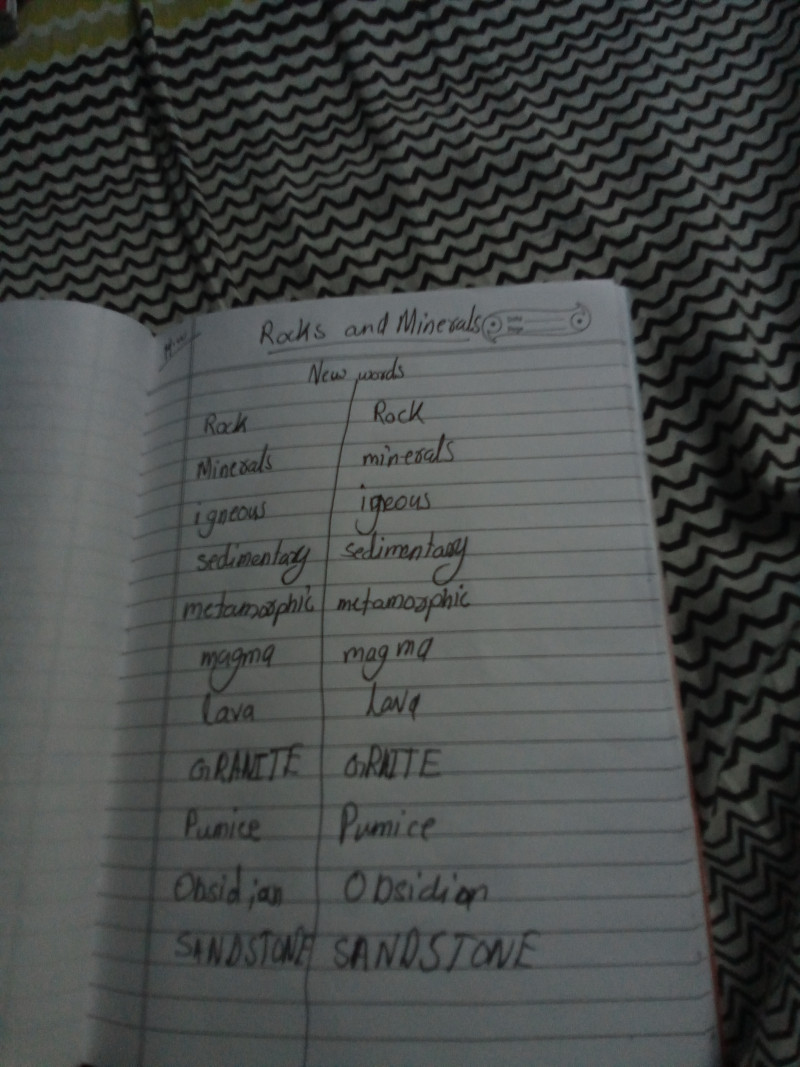 H.W
Rocks and Minerals
New words
Rock Rock
Minerals minerals
igneous igeous
sedimentary sedimentary
metamorphic metamorphic
magma magma
Lava Lava
GRANITE GRNITE
Pumice Pumice
Obsidian Obsidian
SANDSTONE SANDSTONE